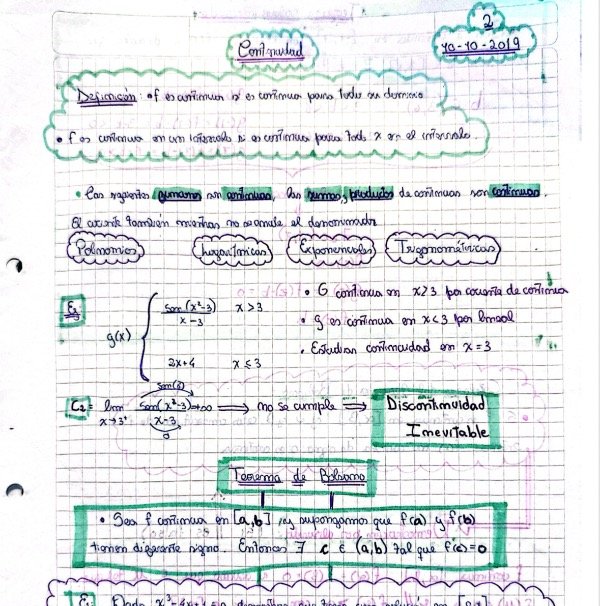 2
10-10-2019
Continuidad
Definición: • f es continua si es continua para todo su dominio
• f es continua en un intervalo si es continua para todo x en el intervalo.
• Las siguientes son continuas, las sumas, productos de continuas son continuas.
El cociente también mientras no se anule el denominador
Polinomios Logarítmicas Exponenciales Trigonométricas
Ej
g(x) { sen(x²-3) / x-3 x>3
2x+4 x≤3
• G continua en x>3 por cociente de continua
• g es continua en x<3 por lineal
• Estudiar continuidad en x=3
sen(6)
C2 = lim x→3⁺ sen(x²-3) / x-3 = +∞ ⟹ no se cumple ⟹ Discontinuidad
0
Inevitable
Teorema de Bolzano
• Sea f continua en [a,b], y supongamos que f(a) y f(b)
tienen diferente signo. Entonces ∃ c ∈ (a,b) tal que f(c)=0
Ej